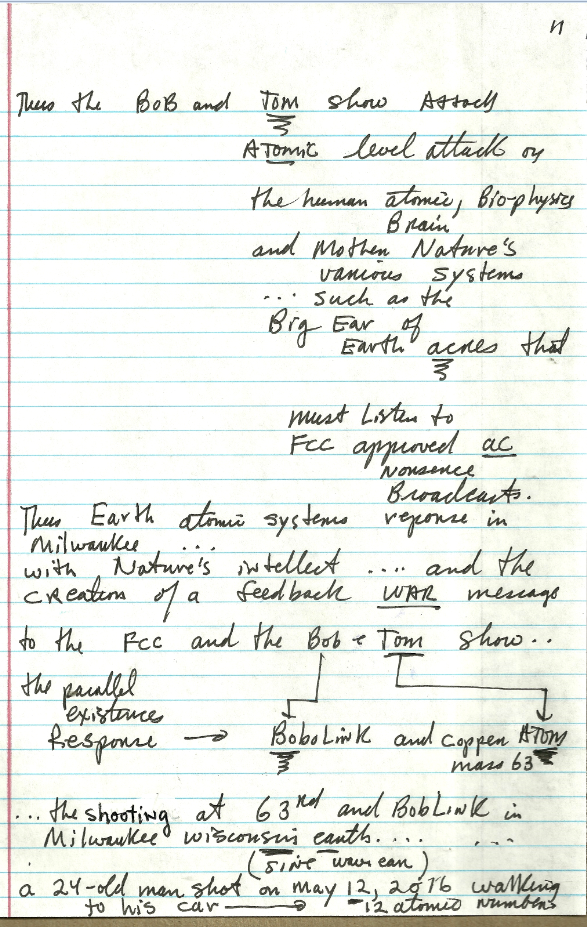 11
Thus the BoB and Tom show Attack
ATomic level attack on
the human atomic, Bio-physics
Brain
and Mother Nature's
various systems
... such as the
Big Ear of
Earth acres that
must Listen to
FCC approved ac
nonsence
Broadcasts.
Thus Earth atomic systems reponse in
Milwaukee ...
with Nature's intellect .... and the
creation of a feedback WAR message
to the FCC and the Bob & Tom show..
the parallel
existences
Response → BoboLink and copper ATom
mass 63
... the shooting at 63rd and BobLink in
Milwaukee wisconsin earth.... ...
(sine wave ear)
a 24-old man shot on May 12, 2016 walking
to his car → -12 atomic numbers